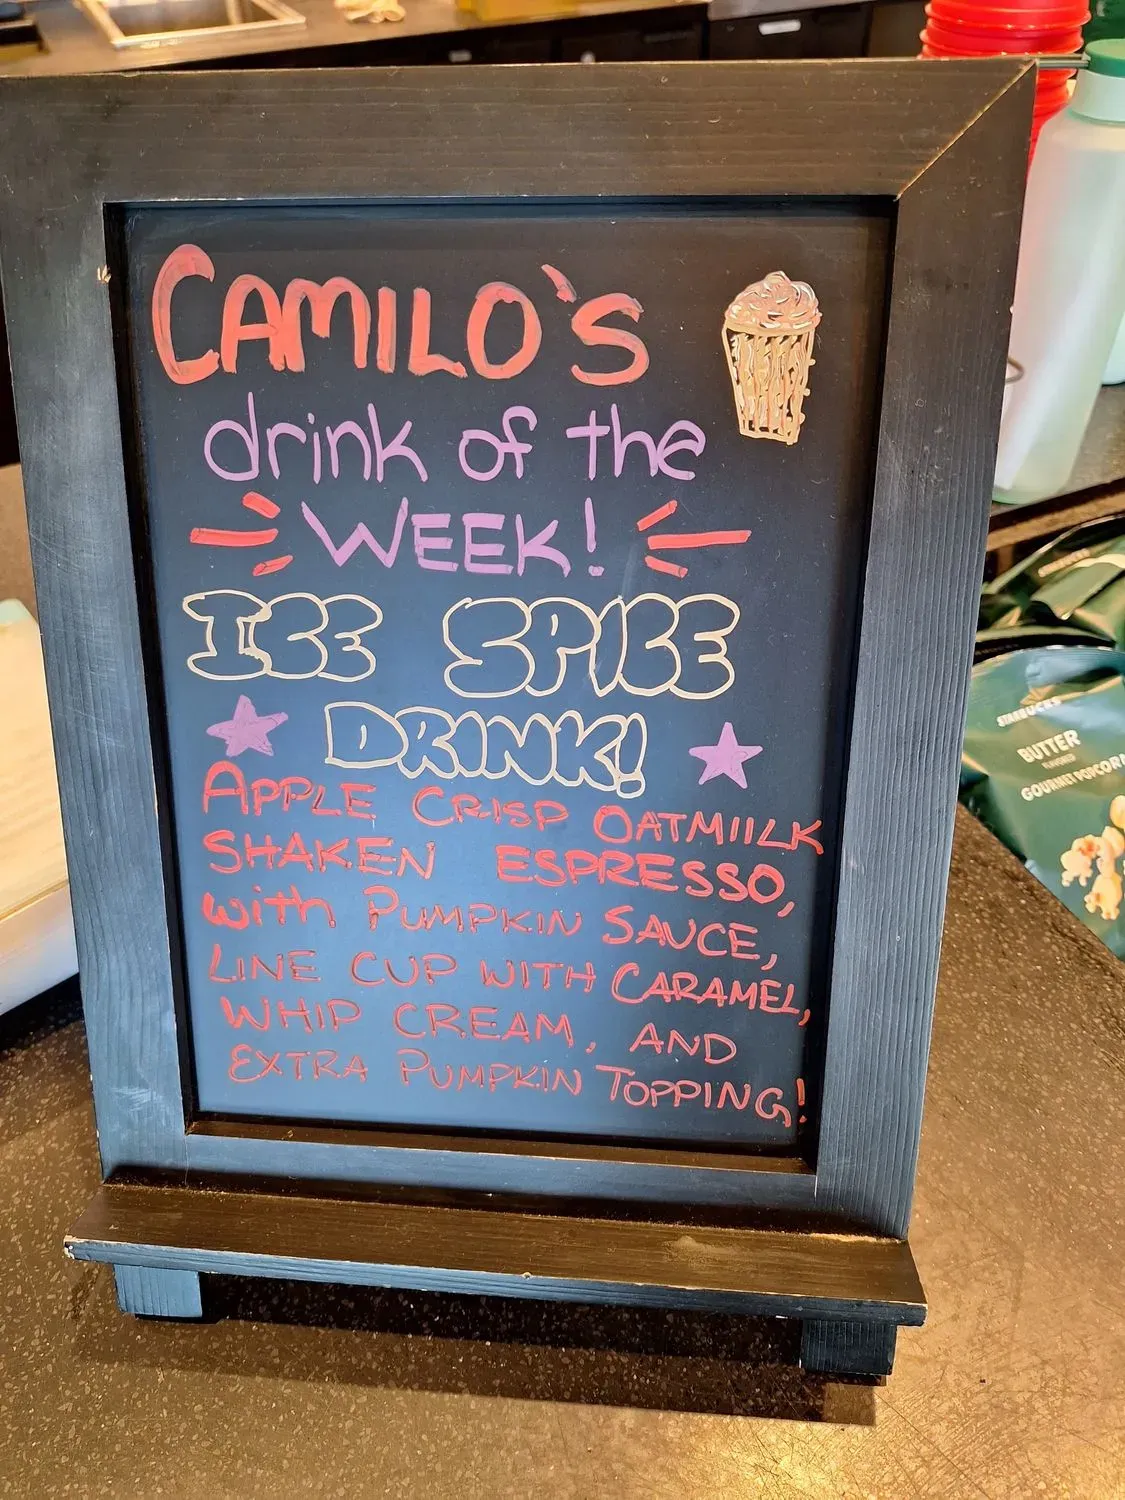 CAMILO'S
drink of the
WEEK!
ICE SPICE
DRINK!
APPLE CRISP OATMIILK
SHAKEN ESPRESSO,
with PUMPKIN SAUCE,
LINE CUP WITH CARAMEL,
WHIP CREAM, AND
EXTRA PUMPKIN TOPPING!
STARBUCKS
BUTTER
FLAVORED
GOURMET POPCORN